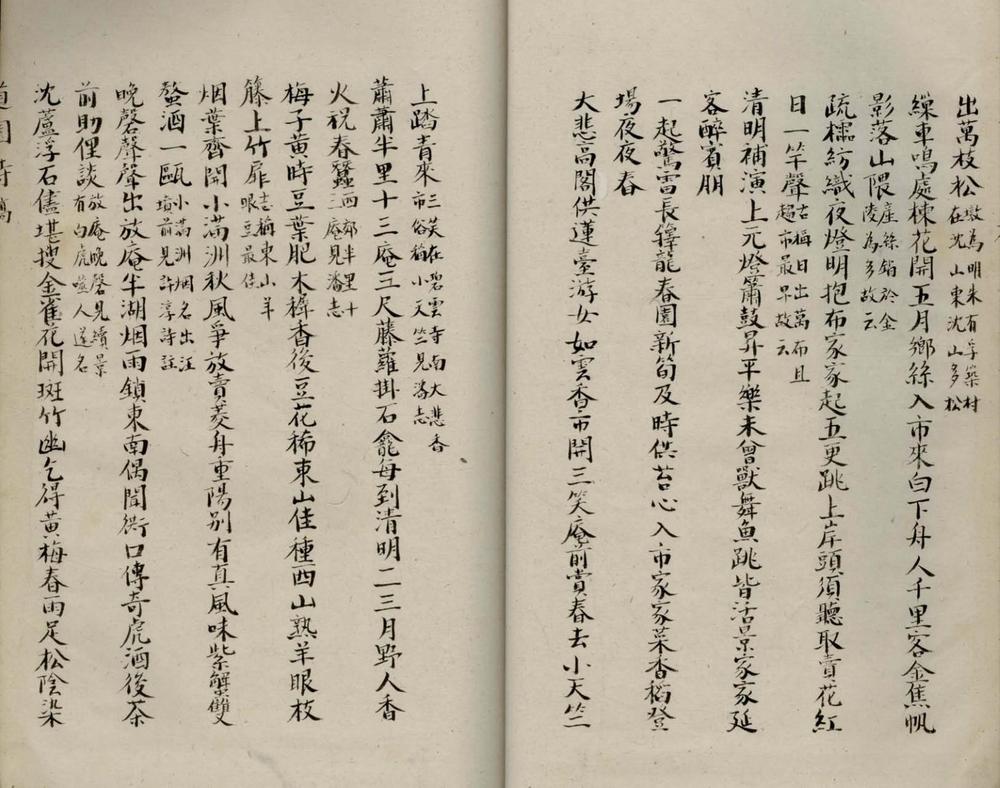 出萬枝松在沈山東沈山多松
繰車鳴處楝花開五月鄉絲入市來白下舟人千里客金焦帆
影落山隈產絲銷於金陵為多故云
疏櫺紡織夜燈明抱布家家起五更跳上岸頭須聽取賣花紅
日一竿聲古稱日出萬布且超市最早故云
清明補演上元燈簫鼓昇平樂未曾獸舞魚跳皆活景家家延
客醉賓朋
一起驚雷長籜龍春園新筍及時供苦心入市家家菜香稻登
場夜夜舂
大悲高閣供蓮臺游女如雲香市開三笑庵前賞春去小天竺
上踏青來三笑在碧雲寺南大悲香市俗稱小天竺見潘志
蕭蕭半里十三庵三尺藤蘿掛石龕每到清明二三月野人香
火祝春蠶西郊半里十三庵見潘志
梅子黃時豆葉肥木樨香後豆花稀東山佳種西山熟羊眼枝
籐上竹扉志稱東山羊眼豆最佳
烟葉齊開小滿洲秋風爭放賣菱舟重陽別有真風味紫蟹雙
螯酒一甌小滿洲烟名出汪墳前見許淳詩註
晚磬聲聲出放庵半湖烟雨鎖東南偶聞衖口傳奇虎酒後茶
前助俚談放庵晚磬見續景有白虎噬人送名
沈蘆浮石舊堪搜金雀花開斑竹幽乞得黃梅春雨足松陰染